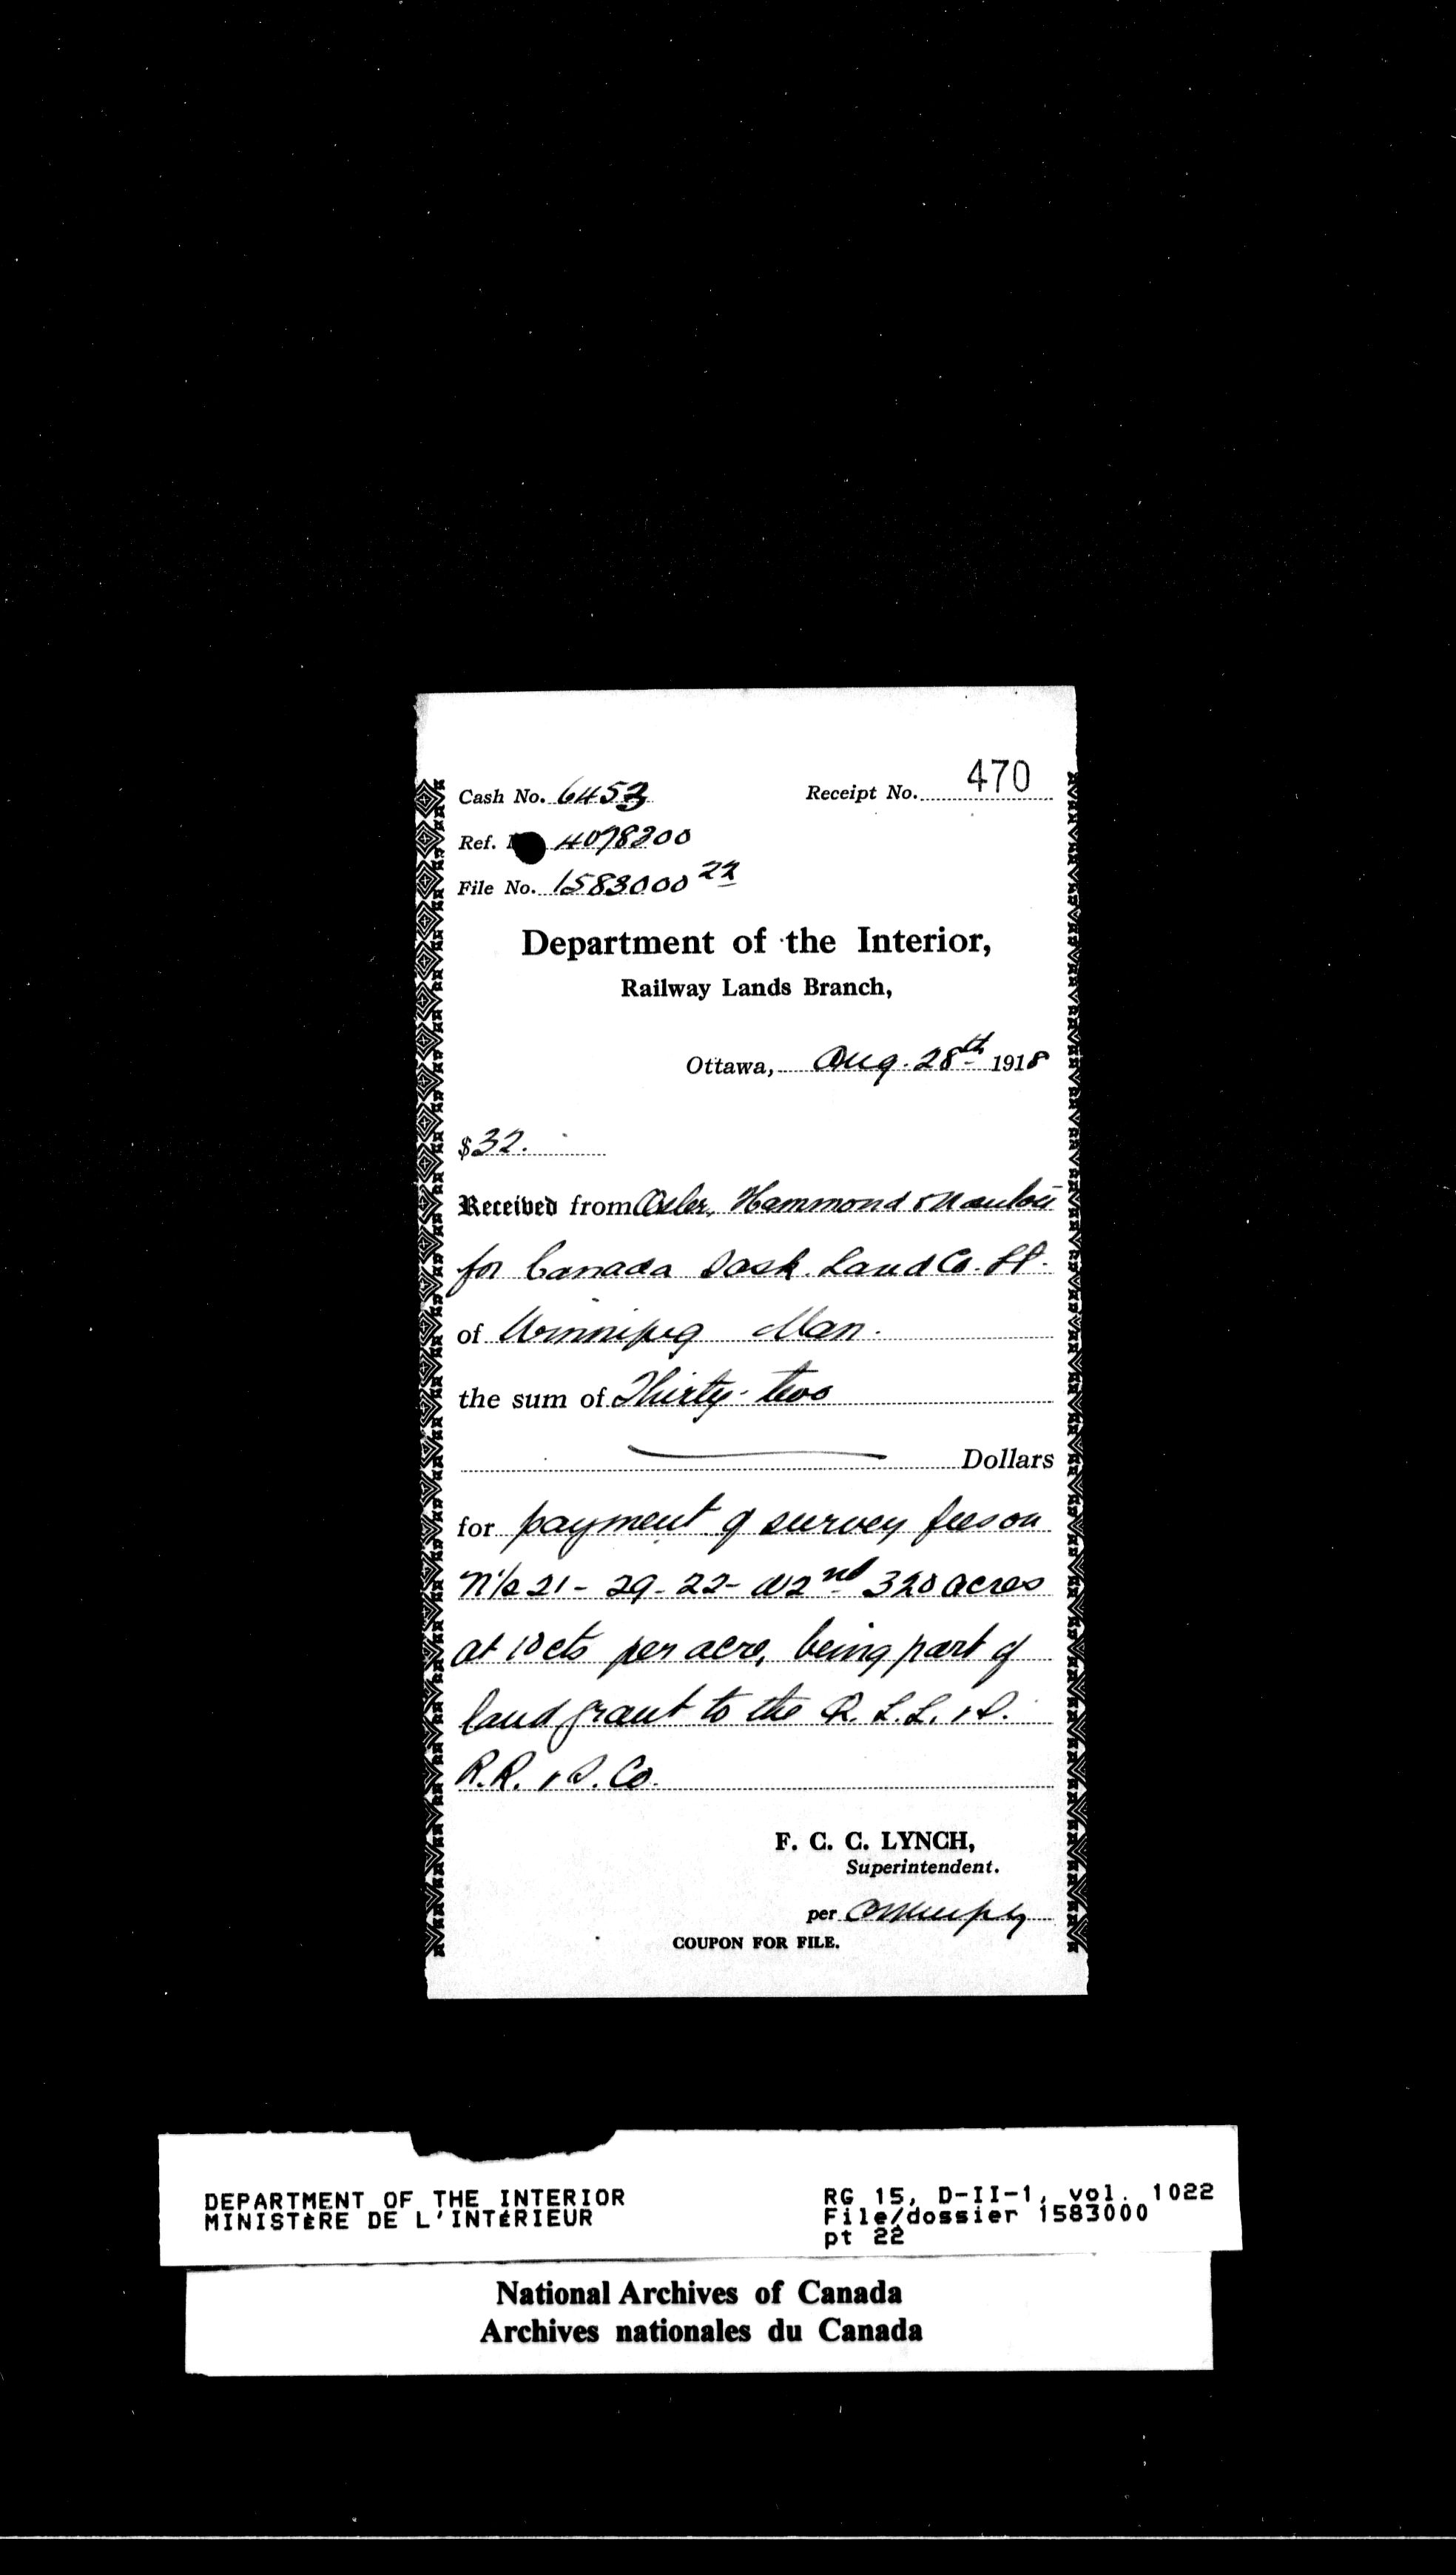 Cash No. 6453
Receipt No. 470
Ref. 4098200
File No. 1583000 22
Department of the Interior,
Railway Lands Branch,
Ottawa, Aug. 28th 1918
$32.
Received from Osler, Hammond & Nanton
for Canada Sask. Land Co. Lt.
of Winnipeg Man.
the sum of Thirty-two
Dollars
for payment of survey fees on
N 1/2 21-29-22-W2nd 320 acres
at 10 cts per acre, being part of
land grant to the Q. L. L. & S.
R.R. & S. Co.
F. C. C. LYNCH,
Superintendent.
per
COUPON FOR FILE.
DEPARTMENT OF THE INTERIOR
MINISTÈRE DE L'INTÉRIEUR
RG 15, D-II-1, vol. 1022
File/dossier 1583000
pt 22
National Archives of Canada
Archives nationales du Canada